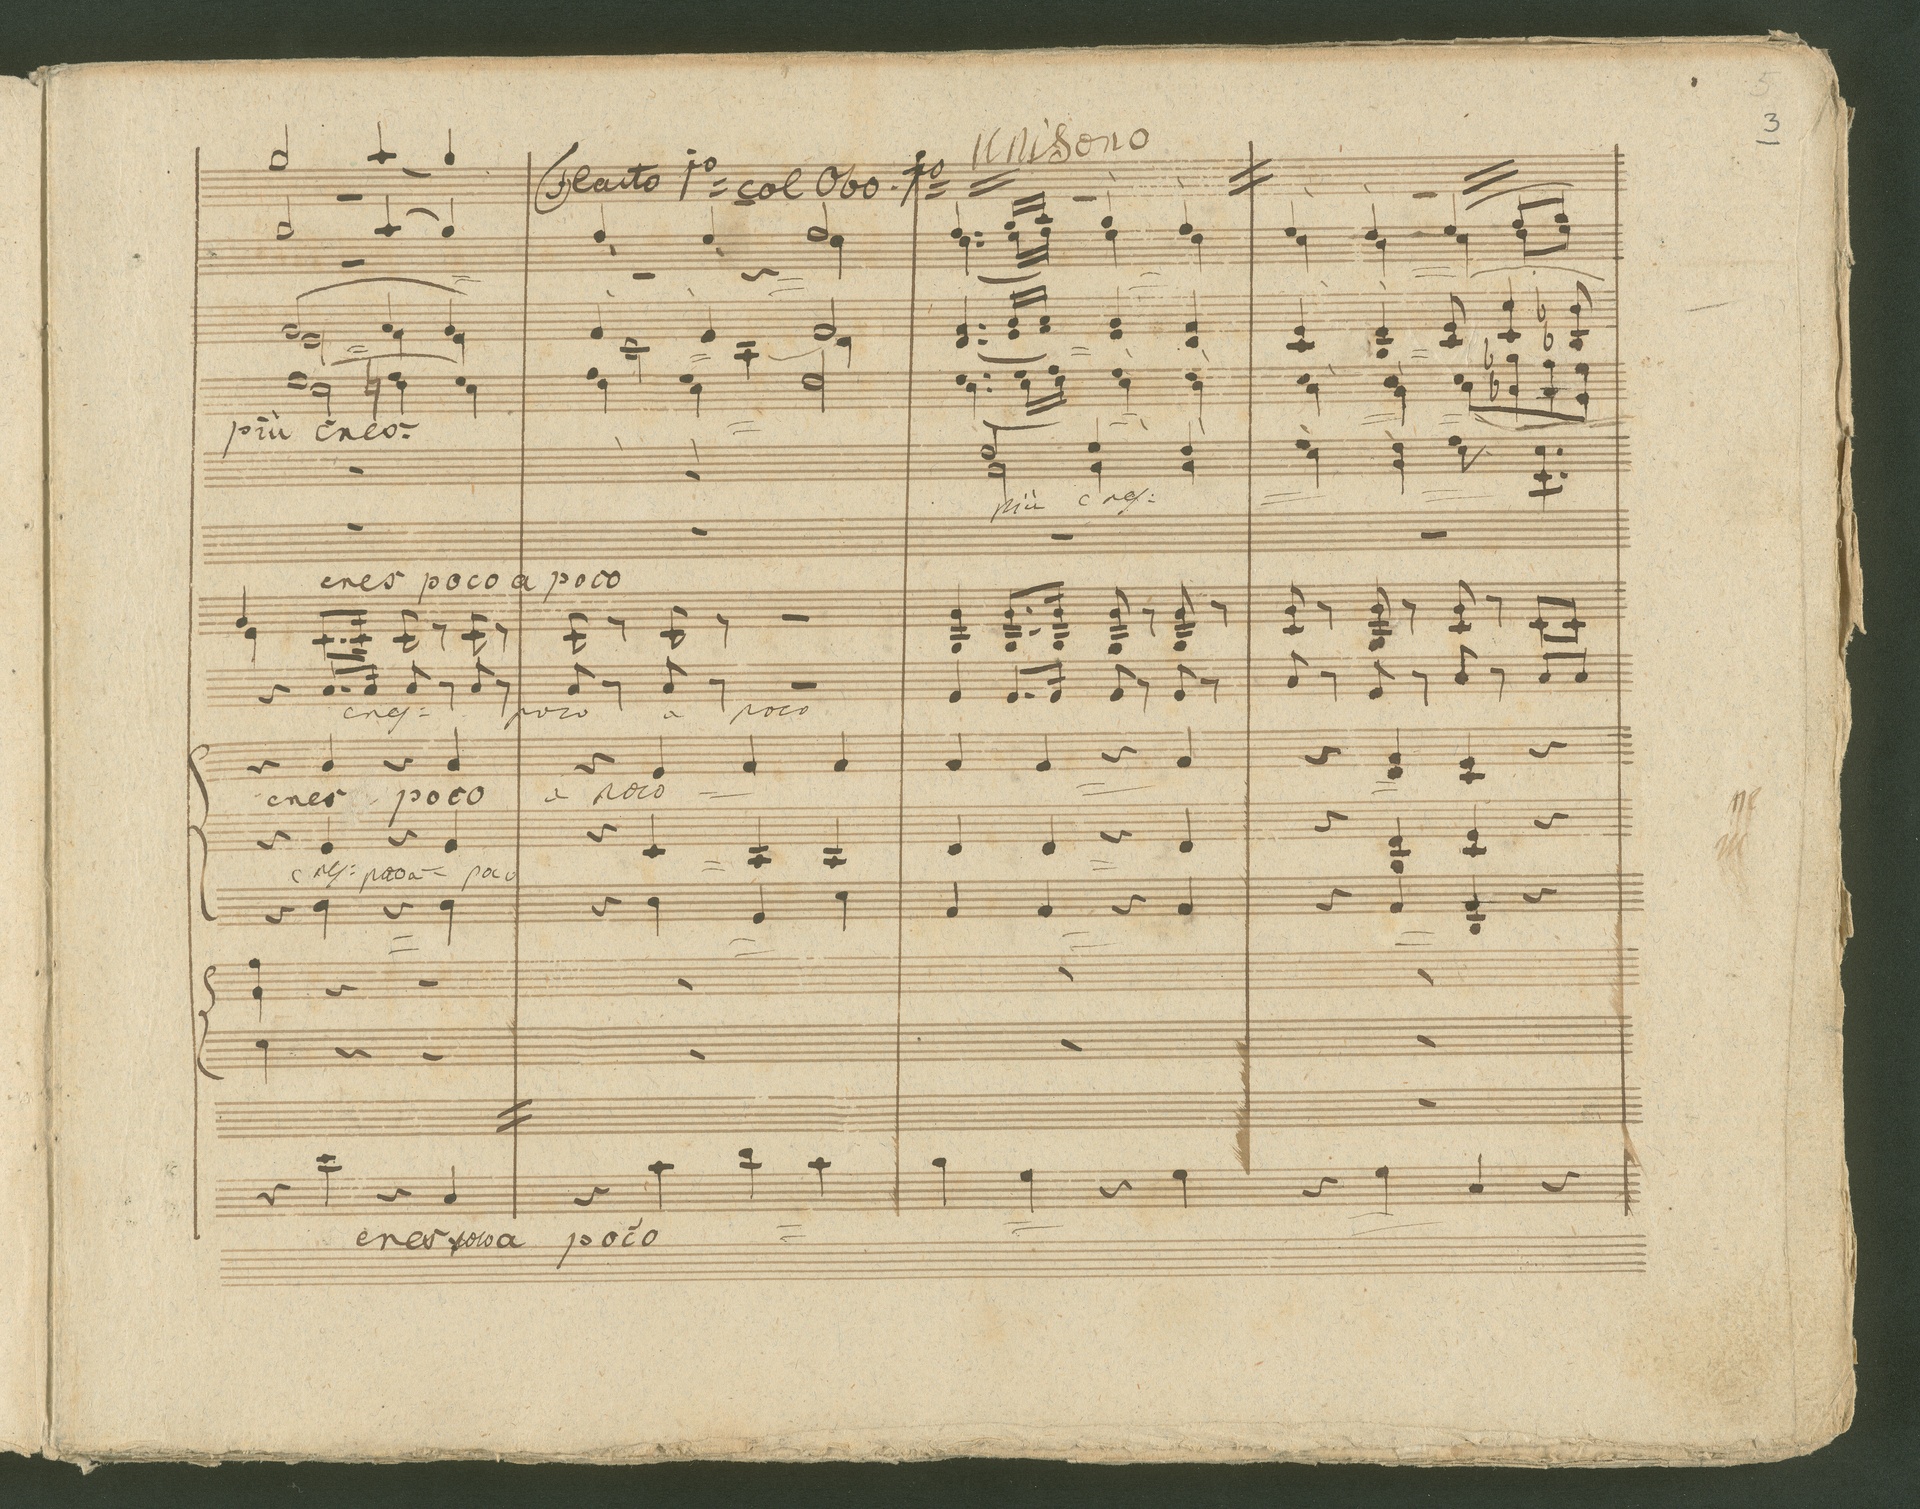 5
3
Unisono
Flauto po = col Obo. po =
più cres:
più cres:
cres poco a poco
cres: poco a poco
cres poco a poco
cres: poco a poco
cres poco a poco